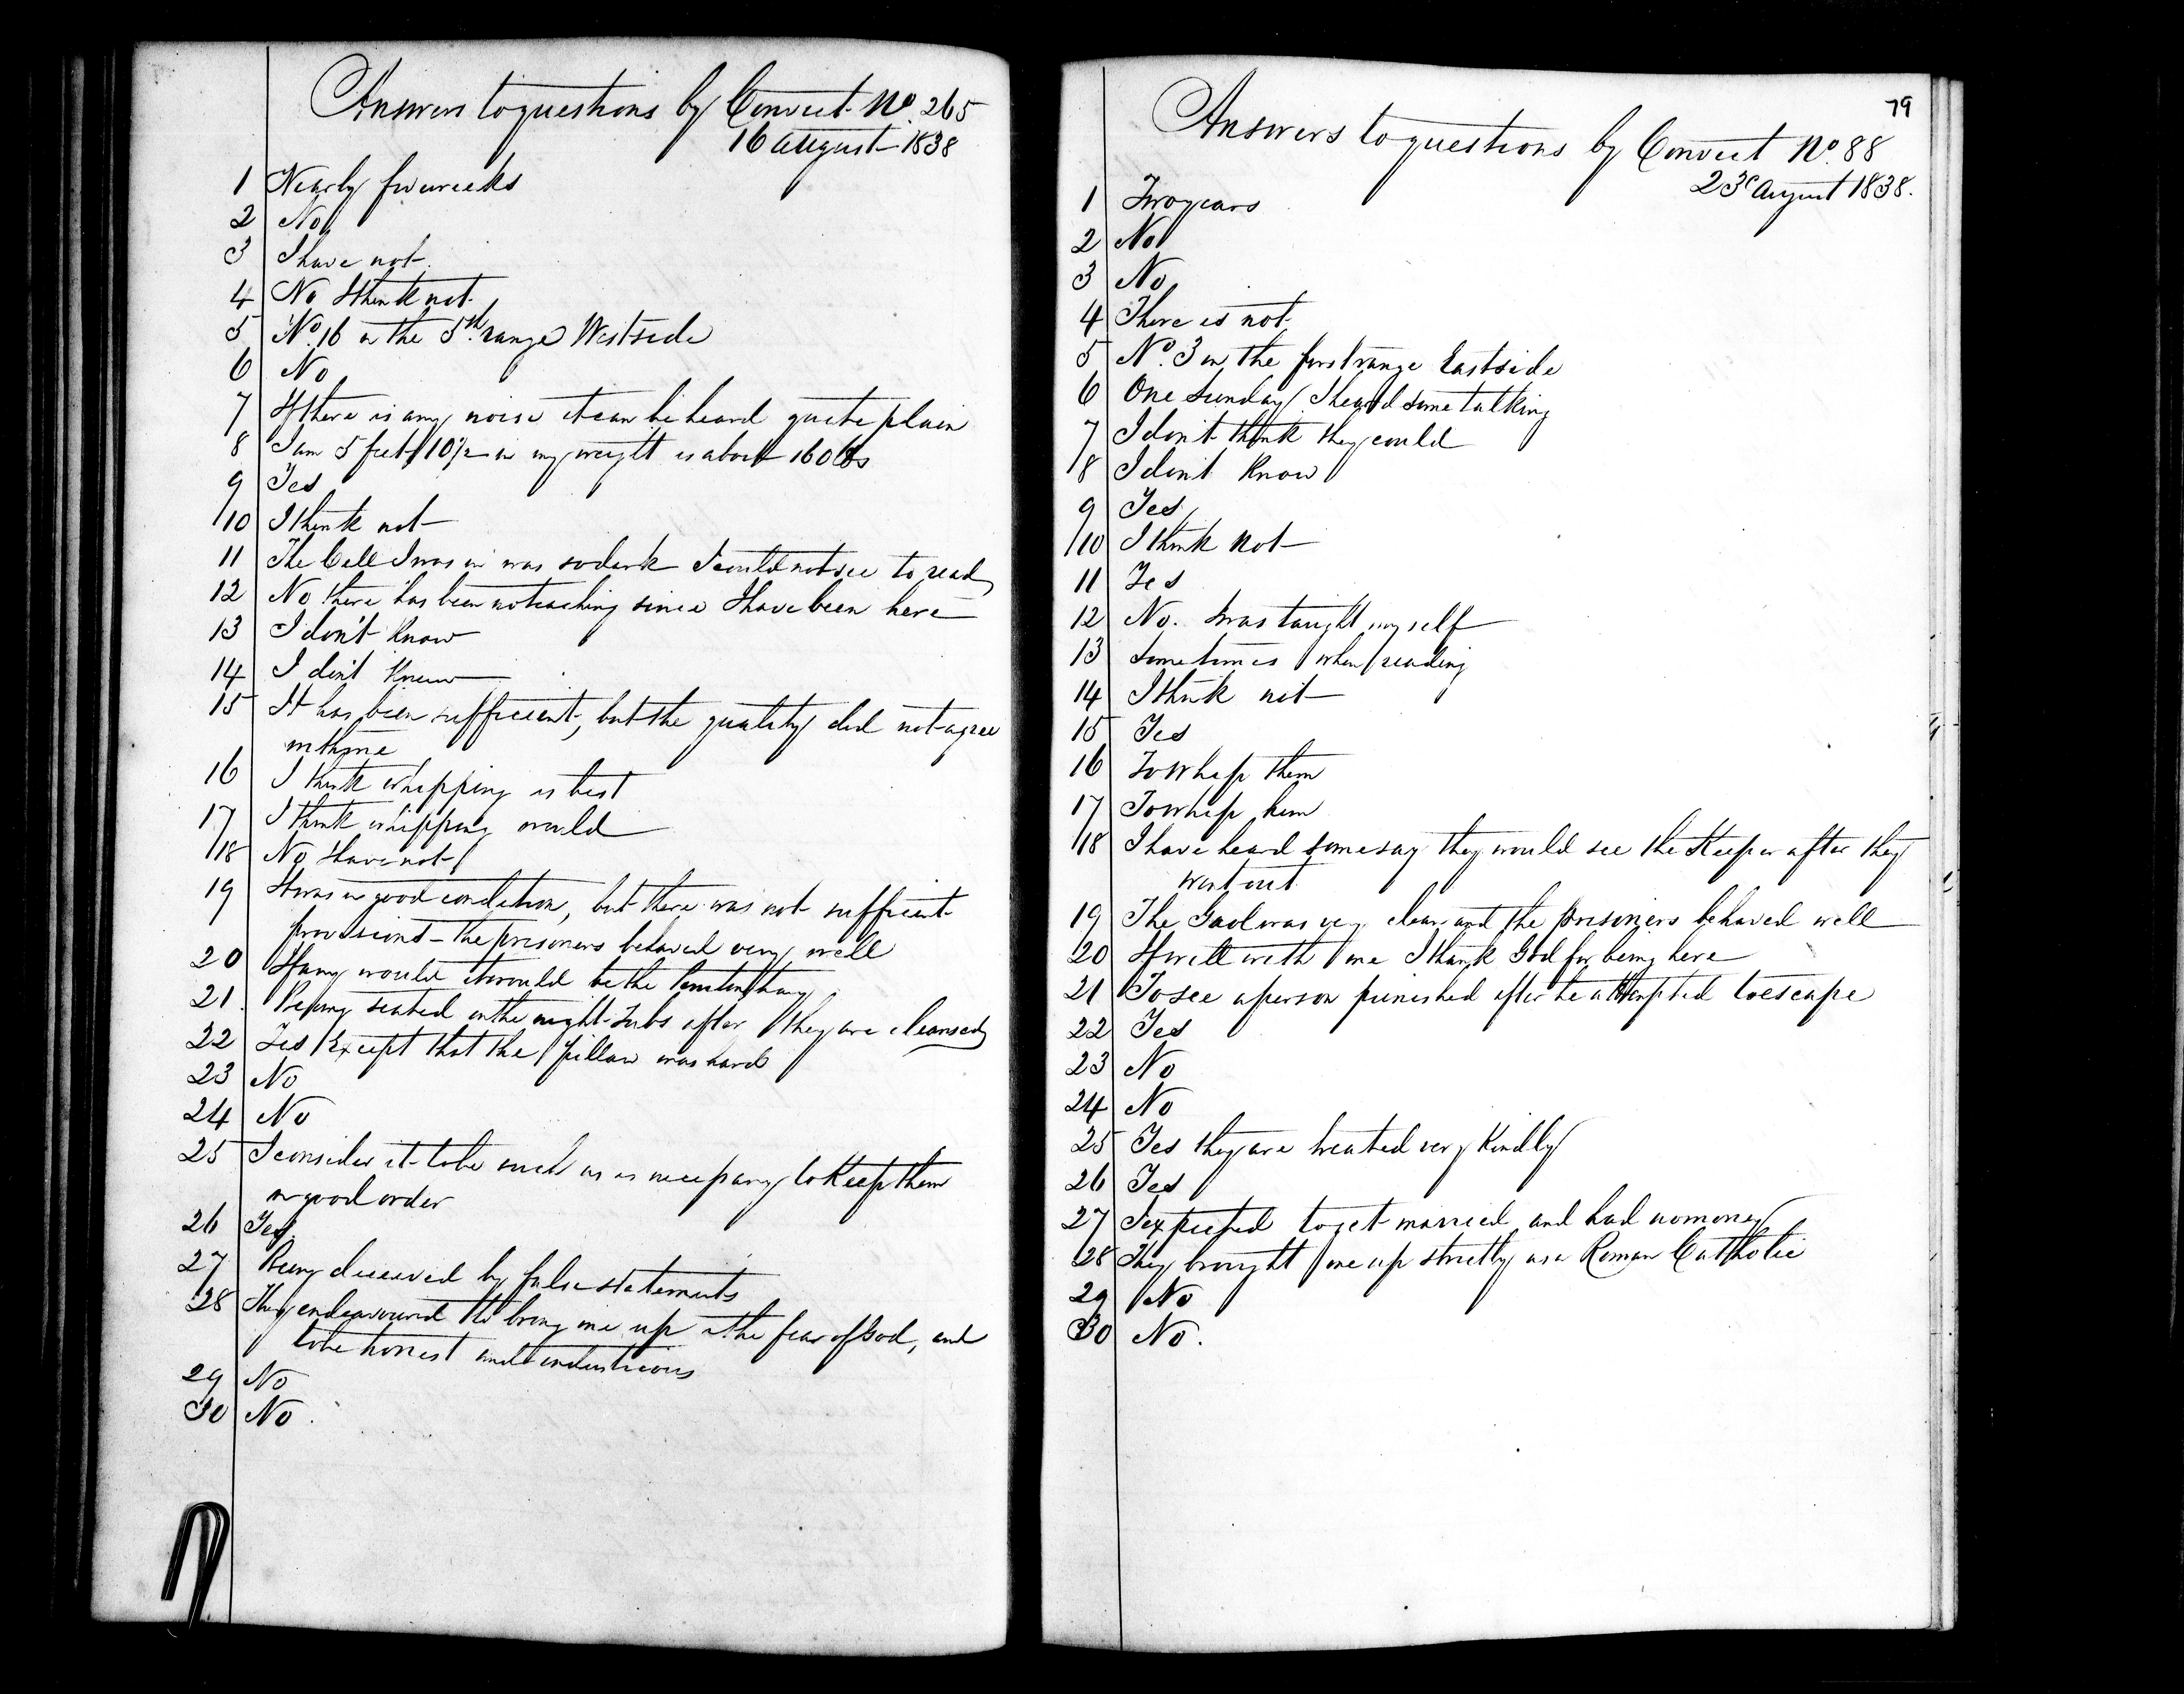 Answers to questions by Convict No. 265
16 August 1838
1 Nearly five weeks
2 No
3 I have not
4 No I think not
5 No. 16 in the 5th range West side
6 No
7 If there is any noise it can be heard quite plain
8 I am 5 feet 10 1/2 in my weight is about 160 lbs
9 Yes
10 I think not
11 The Cell I was in was so dark I could not see to read
12 No there has been no teaching since I have been here
13 I don't know
14 I don't know
15 It has been sufficient, but the quality did not agree
with me
16 I think whipping is best
17 I think whipping would
18 No I have not
19 It was in good condition, but there was not sufficient
provisions - the prisoners behaved very well
20 If any would it would be the Penitentiary
21 Being seated on the night Tubs after they are cleansed
22 Yes Except that the pillow was hard
23 No
24 No
25 I consider it to be such as is necessary to Keep them
in good order
26 Yes
27 Being deceived by false statements
28 They endeavoured to bring me up in the fear of God, and
to be honest and industrious
29 No
30 No.
79
Answers to questions by Convict No. 88
23d August 1838.
1 Two years
2 No
3 No
4 There is not
5 No. 3 in the first range East side
6 One Sunday I heard some talking
7 I don't think they could
8 I don't Know
9 Yes
10 I think not
11 Yes
12 No. I was taught myself
13 Sometimes when reading
14 I think not
15 Yes
16 To whip them
17 To whip him
18 I have heard some say they would see the Keeper after they
went out
19 The Gaol was very clean and the prisoners behaved well
20 It will with me I thank God for being here
21 To see a person punished after he attempted to escape
22 Yes
23 No
24 No
25 Yes they are treated very Kindly
26 Yes
27 I expected to get married and had no money
28 They brought me up strictly as a Roman Catholic
29 No
30 No.